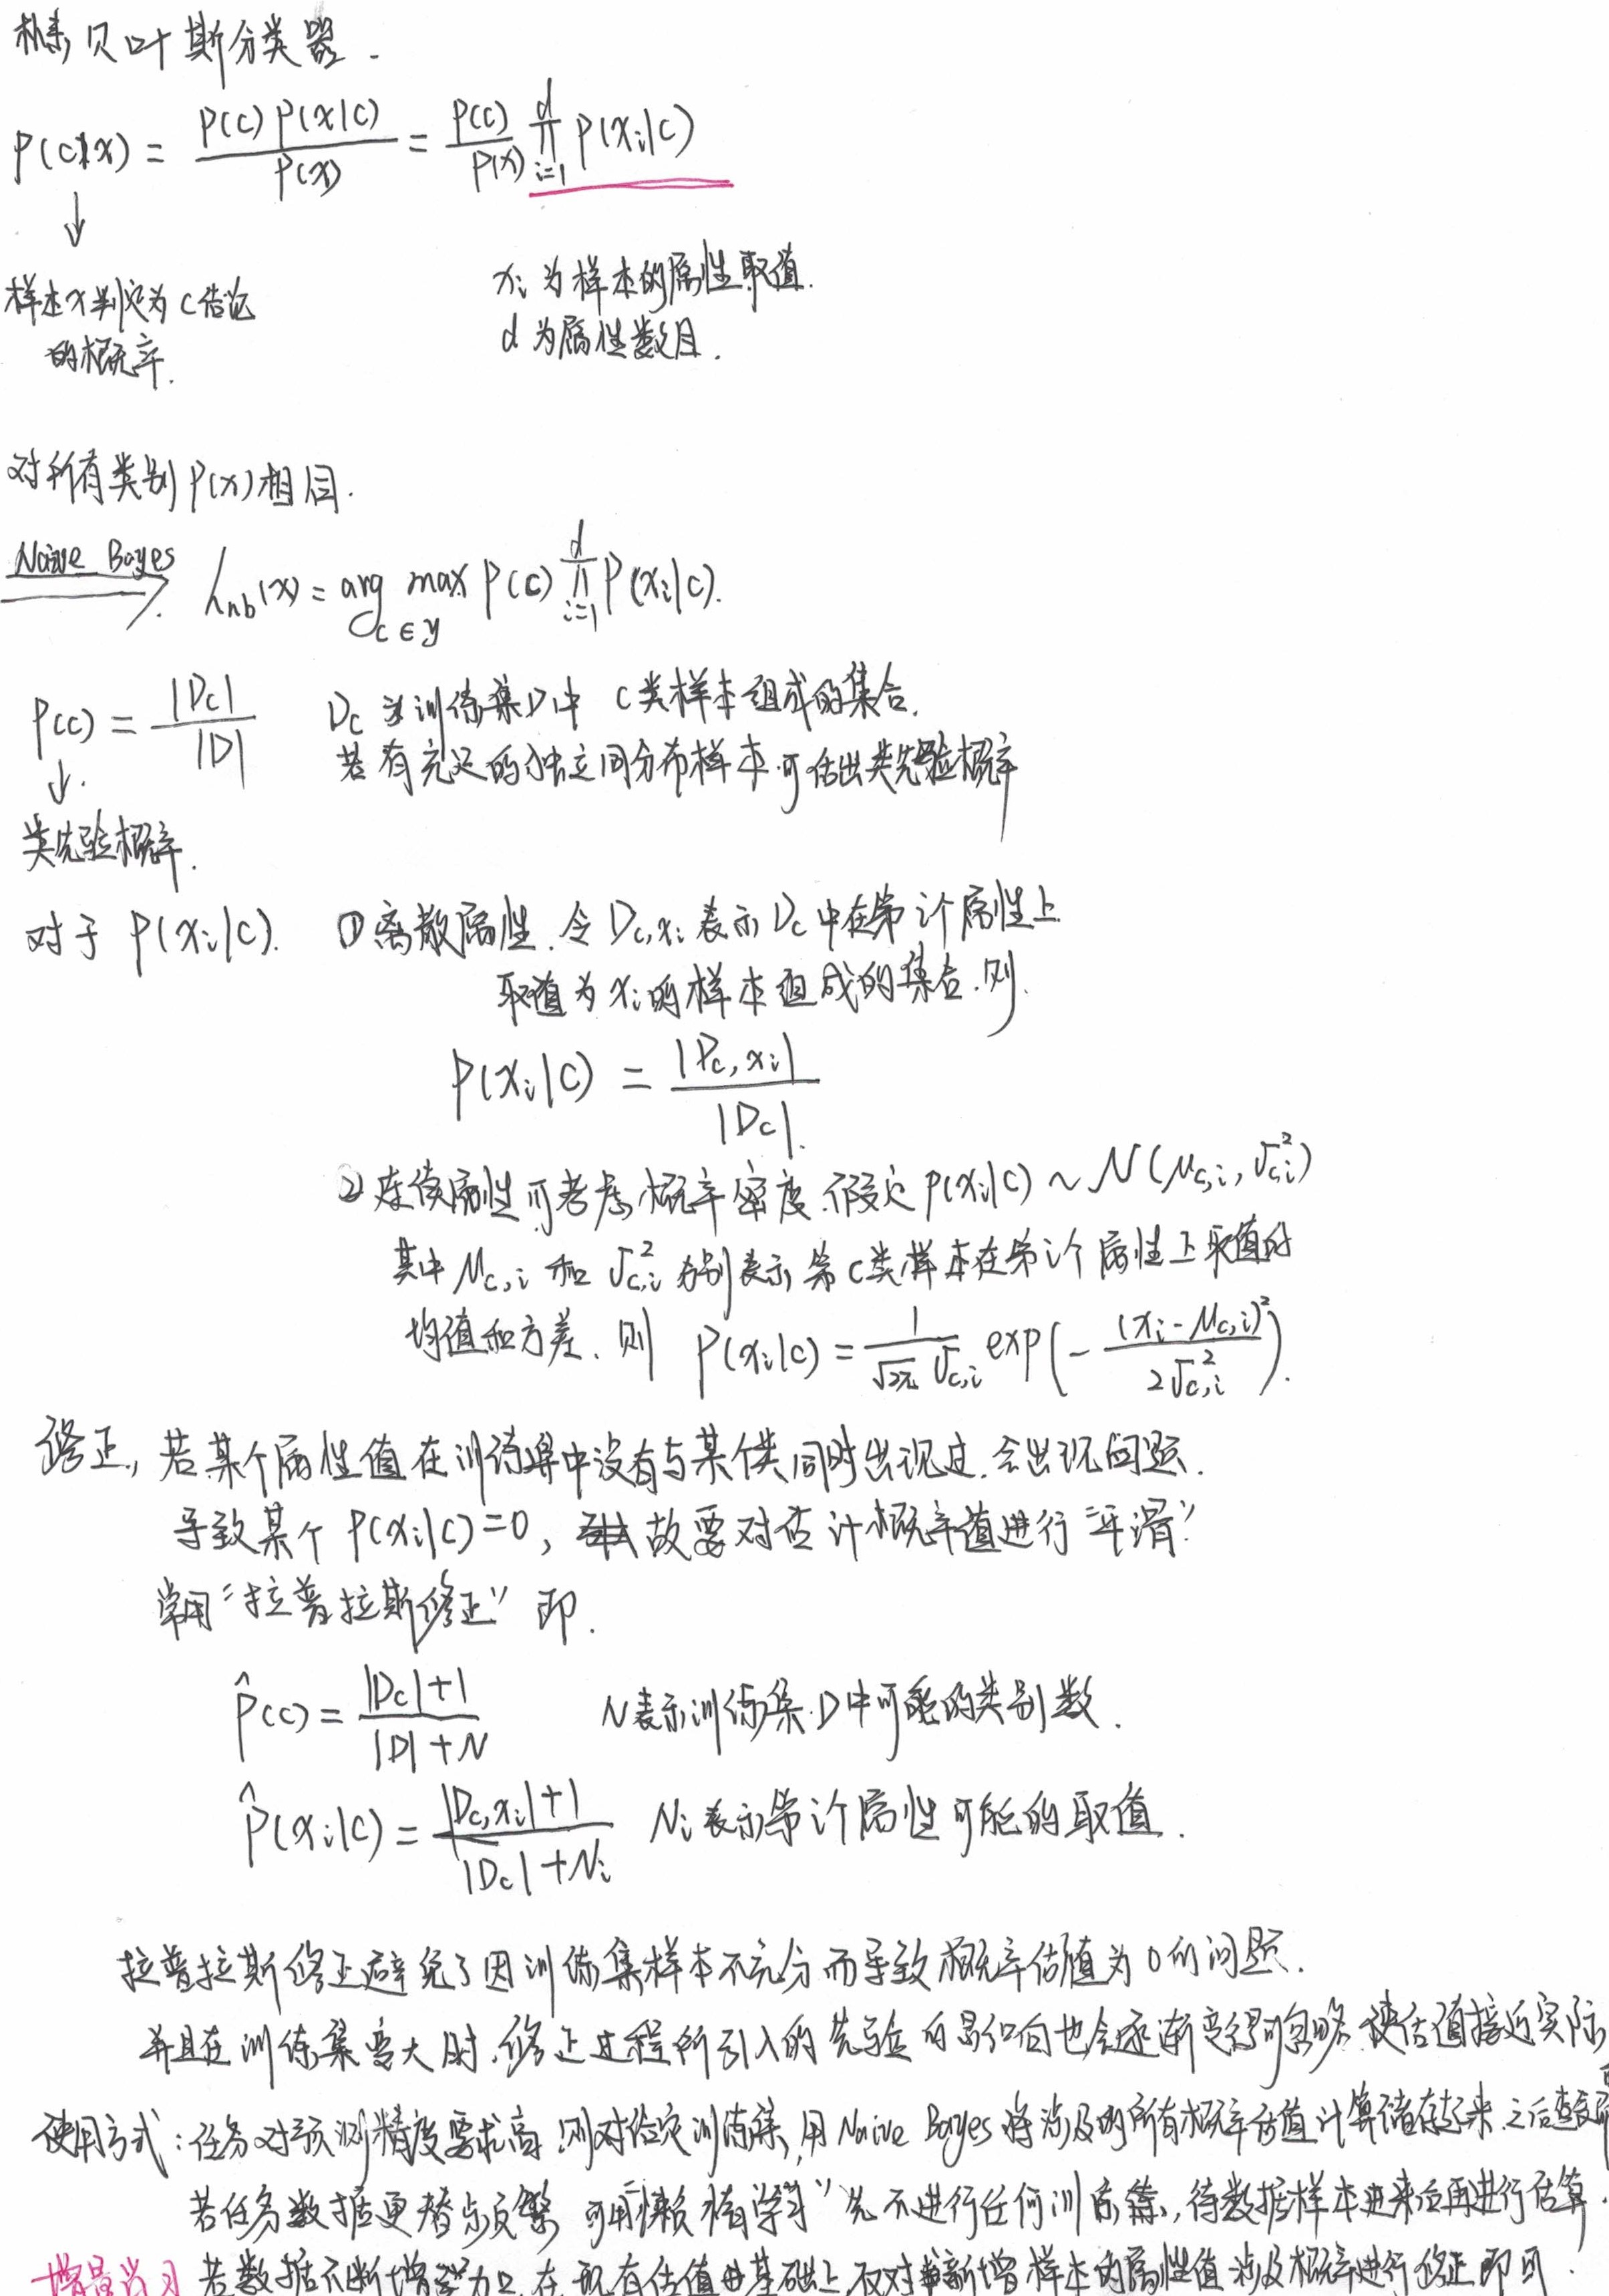 朴素贝叶斯分类器.
P(c|x) = P(c)P(x|c) / P(x) = P(c) / P(x) ∏_{i=1}^{d} P(x_i|c)
↓
样本x判定为c结论
的概率.
x_i 为样本的属性取值.
d 为属性数目.
对所有类别P(x)相同.
Naive Bayes
h_nb(x) = arg max_{c∈y} P(c) ∏_{i=1}^{d} P(x_i|c).
P(c) = |D_c| / |D|
D_c 为训练集D中 c类样本组成的集合.
若有充足的独立同分布样本.可估出类先验概率
↓.
类先验概率.
对于 P(x_i|c). ①离散属性.令D_{c,x_i}表示D_c中在第i个属性上
取值为x_i的样本组成的集合.则.
P(x_i|c) = |D_{c,x_i}| / |D_c|.
②连续属性可考虑概率密度.假定p(x_i|c) ~ N(μ_{c,i}, σ_{c,i}^2)
其中μ_{c,i} 和 σ_{c,i}^2 分别表示第c类样本在第i个属性上取值的
均值和方差.则 P(x_i|c) = 1 / (√2π σ_{c,i}) exp(- (x_i-μ_{c,i})^2 / 2σ_{c,i}^2).
修正,若某个属性值在训练集中没有与某个类同时出现过.会出现问题.
导致某个 P(x_i|c)=0, 故要对估计概率值进行"平滑"
常用"拉普拉斯修正" 即.
P̂(c) = |D_c|+1 / |D|+N N表示训练集D中可能的类别数.
P̂(x_i|c) = |D_{c,x_i}|+1 / |D_c|+N_i N_i表示第i个属性可能的取值.
拉普拉斯修正避免了因训练集样本不充分而导致概率估值为0的问题.
并且在训练集变大时.修正过程所引入的先验的影响也会逐渐变得可忽略.使估值接近实际
使用方式:任务对预测精度要求高.则对给定训练集,用Naive Bayes将涉及的所有概率估值计算储存起来.之后查表即
若任务数据更替频繁 可用"懒惰学习"先不进行任何训练,待数据样本进来后再进行估算.
增量学习 若数据不断增加 在现有估值基础上 仅对新增样本的属性值涉及概率进行修正即可.